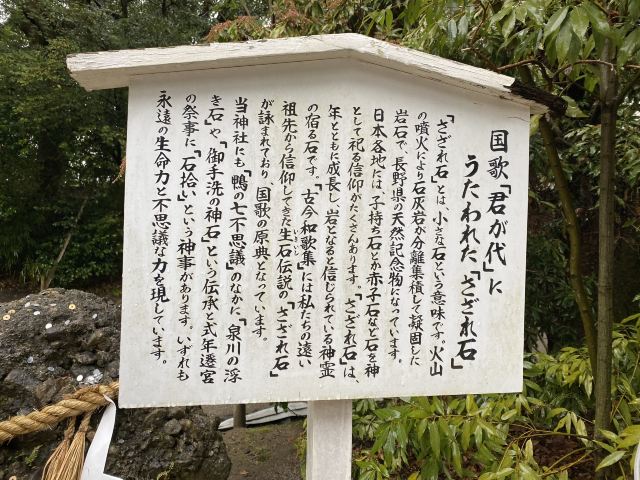 国歌「君が代」に
うたわれた「さざれ石」
「さざれ石」とは、小さな石という意味です。火山
の噴火により石灰岩が分離集積して凝固した
岩石で、長野県の天然記念物になっています。
日本各地には、子持ち石とか赤子石など石を神
として祀る信仰がたくさんあります。「さざれ石」は、
年とともに成長し、岩となると信じられている神霊
の宿る石です。「古今和歌集」には私たちの遠い
祖先から信仰してきた生石伝説の「さざれ石」
が詠まれており、国歌の原典となっています。
当神社にも「鴨の七不思議」のなかに「泉川の浮
き石」や「御手洗の神石」という伝承と式年遷宮
の祭事に「石拾い」という神事があります。いずれも
永遠の生命力と不思議な力を現しています。